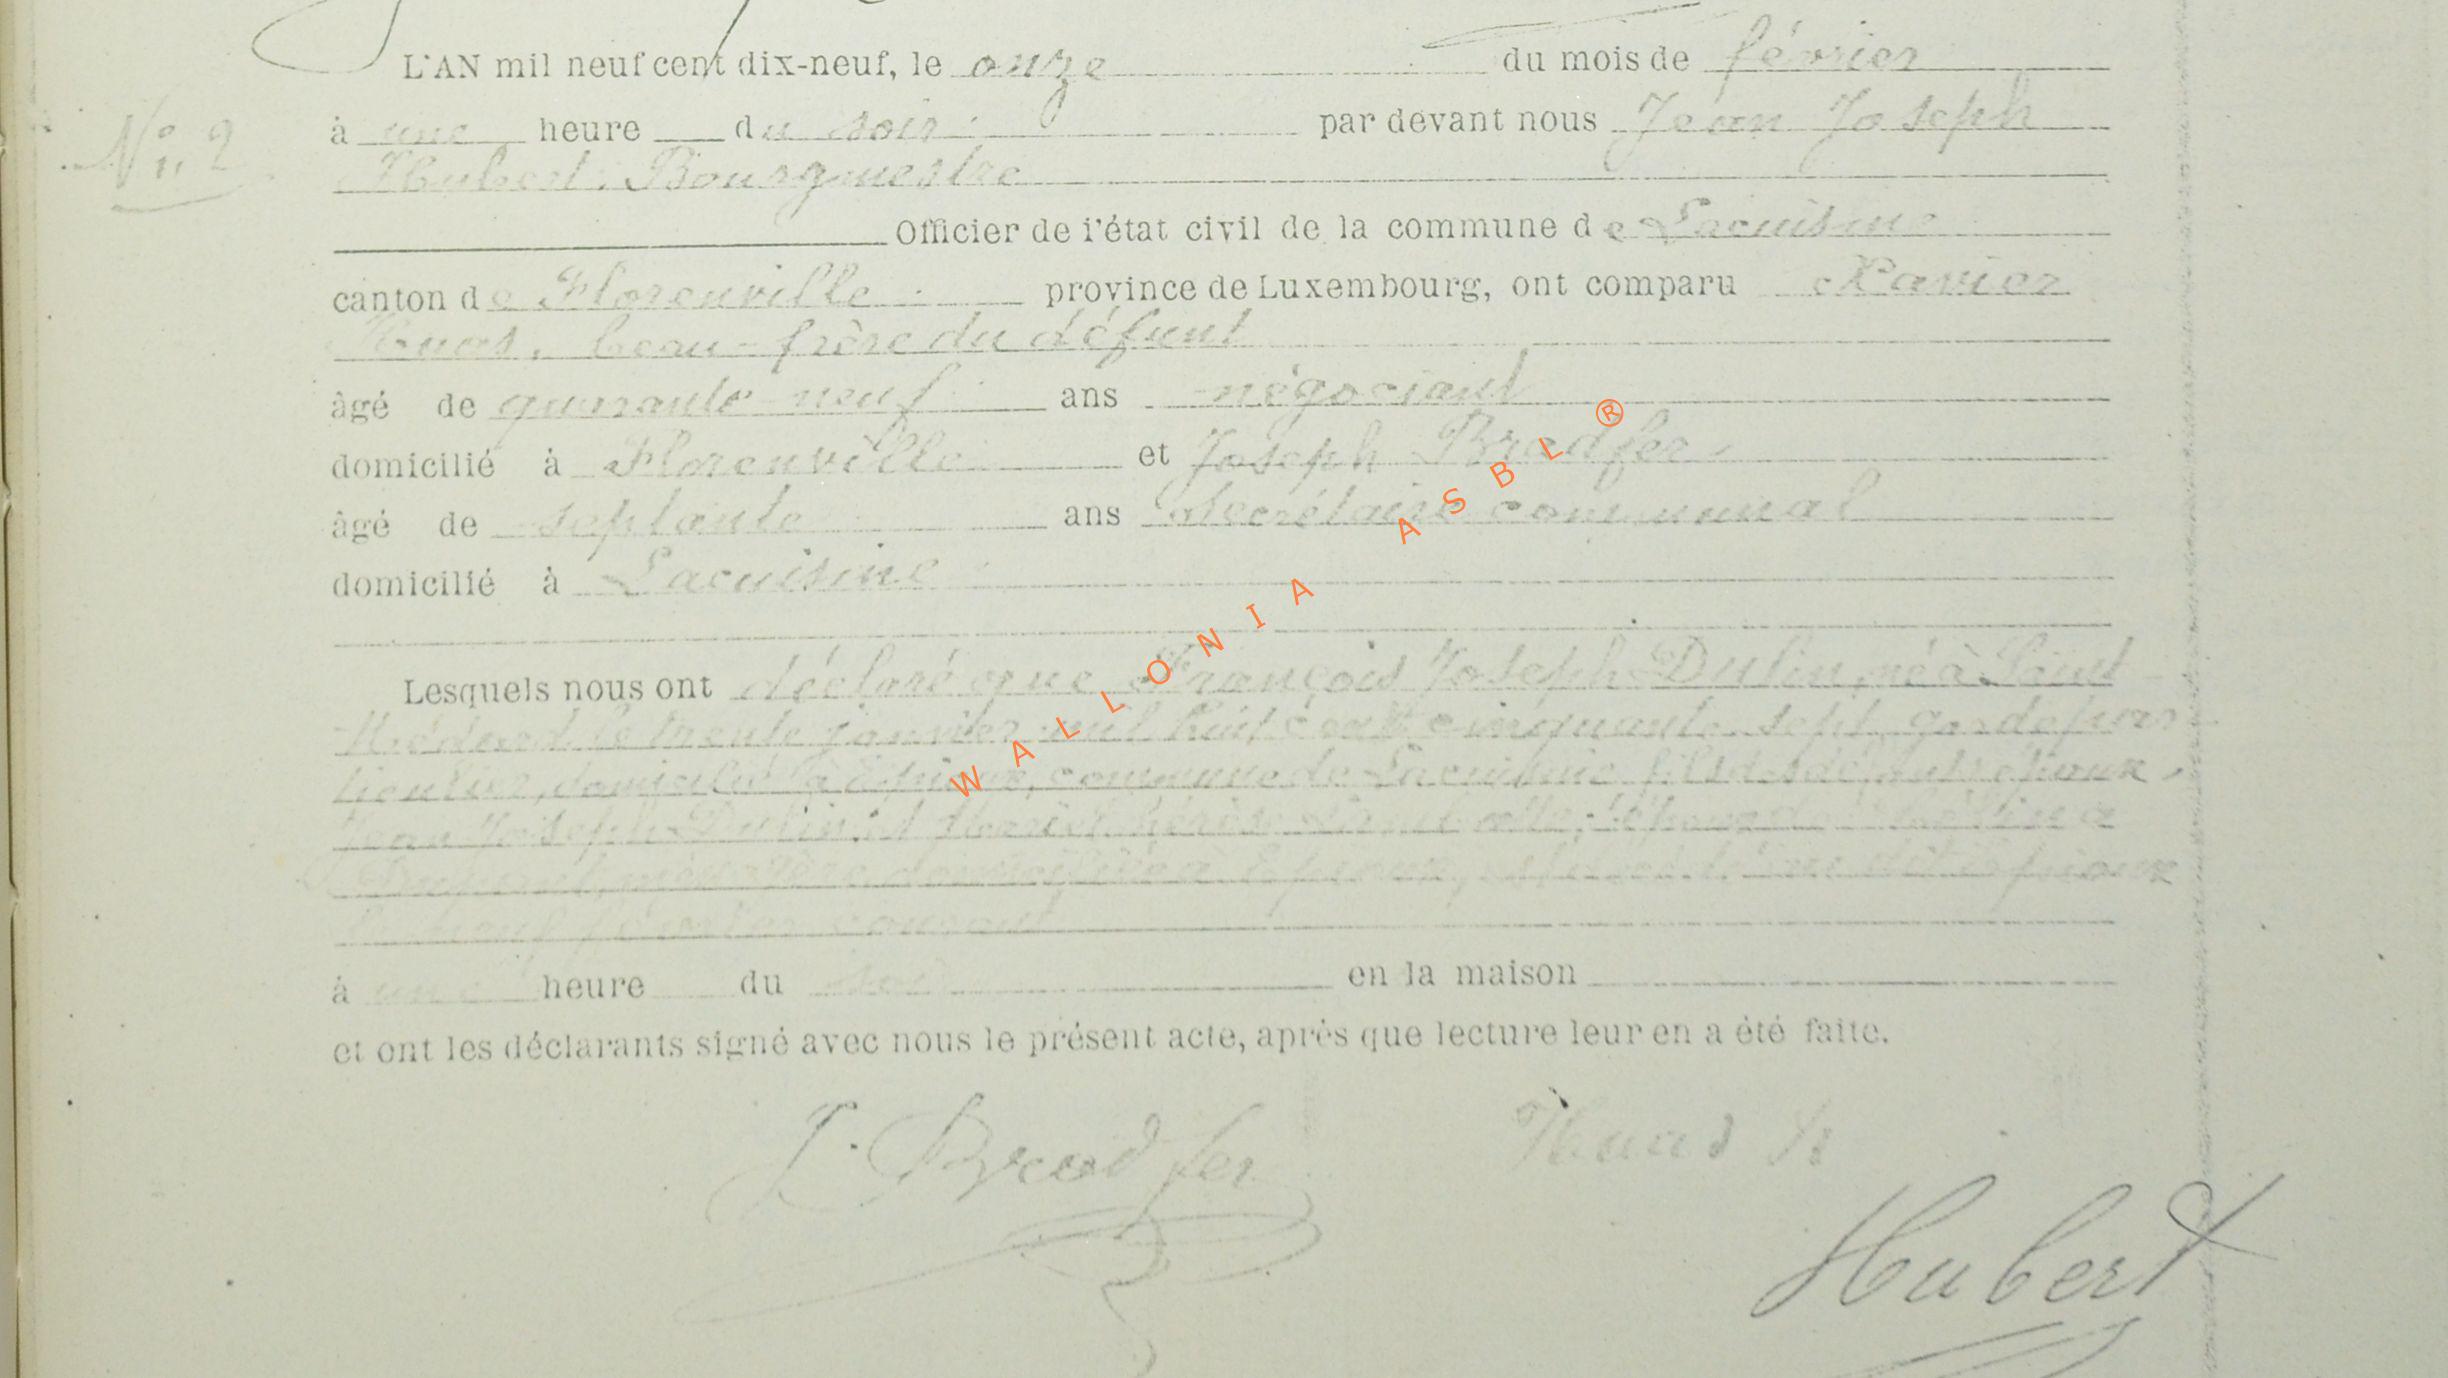 L'AN mil neuf cent dix-neuf, le onze du mois de février
N° 2
à une heure du soir par devant nous Jean Joseph
Hubert, Bourgmestre
Officier de l'état civil de la commune de Lacuisine
canton de Florenville province de Luxembourg, ont comparu Xavier
beau-frère du défunt
âgé de quarante-neuf ans négociant
domicilié à Florenville et Joseph Bradfer,
âgé de septante ans secrétaire communal
domicilié à Lacuisine
Lesquels nous ont déclaré que François Joseph Dulin, né à Saint
Médard le trente janvier mil huit cent cinquante-sept, garde par
ticulier, domicilié à Epioux, commune de Lacuisine, fils des défunts époux
Jean Joseph Dulin et époux de
domiciliée à Epioux, est décédé Epioux
le neuf février courant
à une heure du soir en la maison
et ont les déclarants signé avec nous le présent acte, après que lecture leur en a été faite.
J. Bradfer
Hubert
WALLONIA ASBL ®